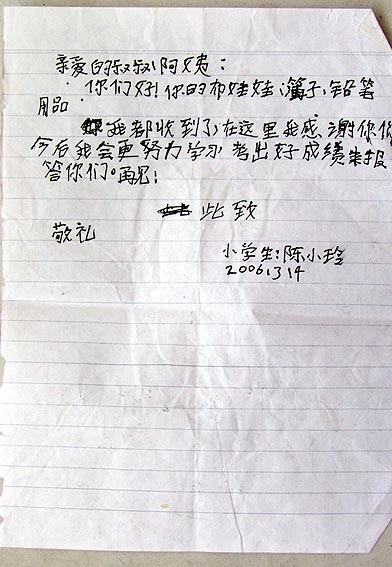 亲爱的叔叔阿姨:
你们好!你的布娃娃、簿子、铅笔
用品.
我都收到了,在这里我感谢你们
今后我会更努力学习考出好成绩来报
答你们。再见!
此致
敬礼
小学生:陈小玲
2006.3.14